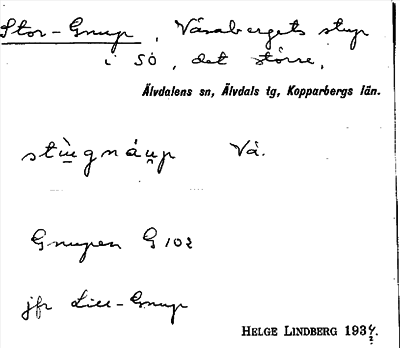 Stor-Gnup, Våsabergets stup
i SÖ, det större,
Älvdalens sn, Älvdals tg, Kopparbergs län.
stùgnáu̯p Vå.
Gnupen G 102
jfr Lill-Gnup
HELGE LINDBERG 1934.